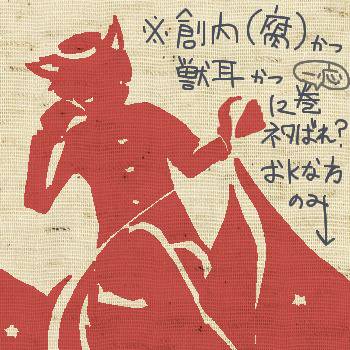 ※創内(腐)かつ
獣耳かつ 一応
12巻
ネタばれ?
おkな方
のみ